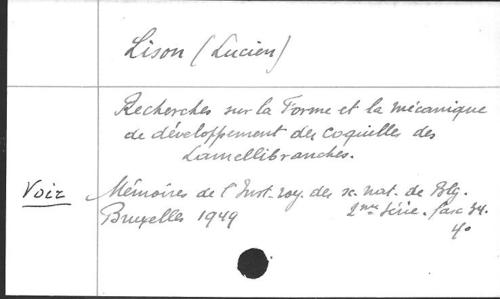 Lison (Lucien)
Recherches sur la Forme et la mécanique
de développement des coquilles des
Lamellibranches.
Voir Mémoires de l'Inst. roy. des sc. nat. de Belg.
Bruxelles 1949 2me Série. fasc 34.
4°